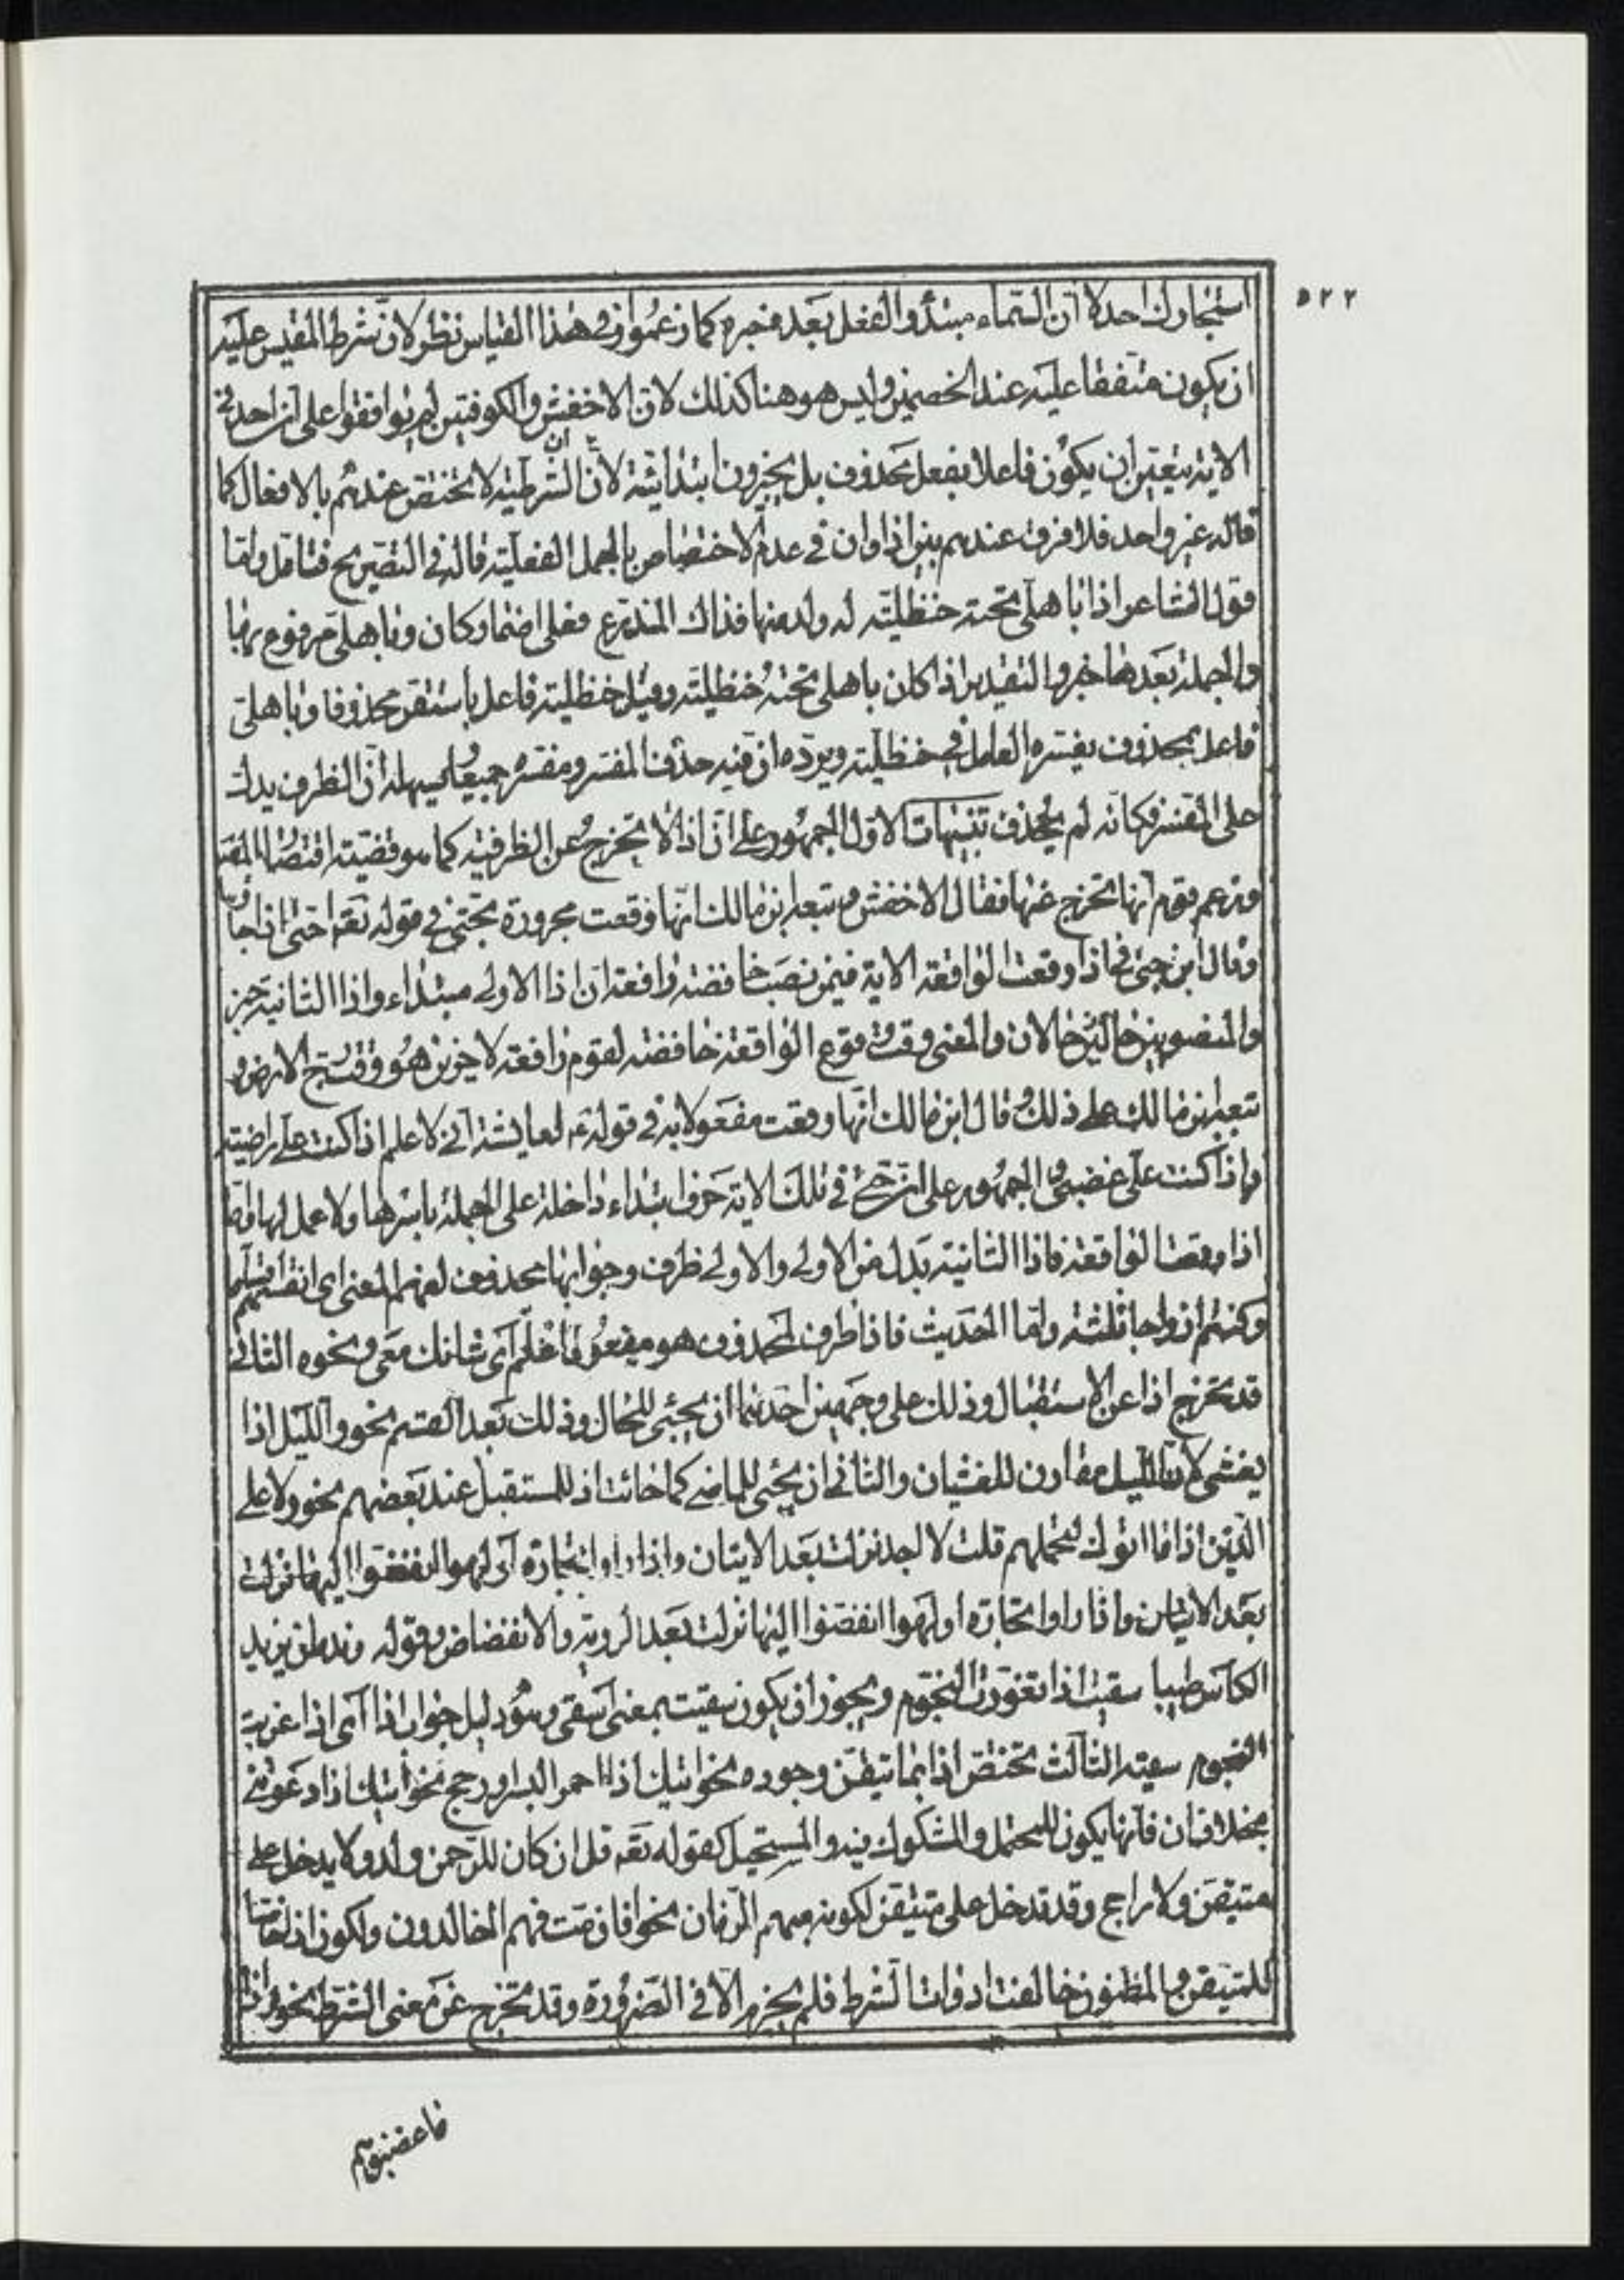 ٥٢٢
استجارك احد لا ان السماء مبتدأ والفعل بعده خبره كما زعموا وفي هذا القياس نظر لان شرط المقيس عليه
ان يكون متفقا عليه عند الخصمين وليس هو هنا كذلك لان الاخفش والكوفيين لم يوافقوا على ان احد في
الاية يتعين ان يكون فاعلا بفعل محذوف بل يجيزون ابتدائيته لان ان الشرطية لا تختص عندهم بالافعال كما
قاله غير واحد فلا فرق عندهم بين اذا وان في عدم الاختصاص بالجمل الفعلية قاله في التصريح فتامل واما
قول الشاعر اذا باهلي تحته حنظلية له ولد منها فذاك المذرع فعلى اضمار كان وباهلي مرفوع بها
والجملة بعدها خبر والتقدير اذا كان باهلي تحته حنظلية وقيل حنظلية فاعل باستقر محذوفا وباهلي
فاعل بمحذوف يفسره العامل في حنظلية ويرده ان فيه حذف المفسر ومفسره جميعا ويسهله ان الظرف يدل
على المفسر فكانه لم يحذف تنبيهات الاول الجمهور على ان اذا لا تخرج عن الظرفية كما هو قضية اقتصار المص
وزعم قوم انها تخرج عنها فقال الاخفش وتبعه ابن مالك انها وقعت مجرورة بحتى في قوله تعه حتى اذا جاؤها
وقال ابن جنى في اذا وقعت الواقعة الاية فيمن نصب خافضة رافعة ان اذا الاولى مبتداء واذا الثانية خبر
والمنصوبين حالان والمعنى وقت وقوع الواقعة خافضة لقوم رافعة لاخرين هو وقت رج الارض و
تبعه ابن مالك على ذلك وقال ابن مالك انها وقعت مفعولا به في قوله ع لعايشة اني لاعلم اذا كنت على راضية
واذا كنت على غضبى والجمهور على ان حتى في تلك الاية حرف ابتداء داخلة على الجملة باسرها ولا عمل لها واما
اذا وقعت الواقعة فاذا الثانية بدل من الاولى والاولى ظرف وجوابها محذوف لفهم المعنى اى انقسمتم
وكنتم ازواجا ثلثة واما الحديث فاذا ظرف لمحذوف هو مفعول اعلم اى شانك معى ونحوه الثاني
قد تخرج اذا عن الاستقبال وذلك على وجهين احدهما ان يجئ للحال وذلك بعد القسم نحو والليل اذا
يغشى لان الليل مقارن للغشيان والثاني ان يجئ للماضي كما جائت اذ للمستقبل عند بعضهم نحو ولا على
الذين اذا ما اتوك لتحملهم قلت لا اجد نزلت بعد الاتيان واذا راوا تجارة او لهوا انفضوا اليها نزلت
بعد الاتيان واذا راوا تجارة او لهوا انفضوا اليها نزلت بعد الروية والانفضاض وقوله وندمان يزيد
الكاس طيبا سقيت اذا تغورت النجوم ويجوز ان يكون سقيت بمعنى اسقى وهو دليل جواب اذا اى اذا غربت
النجوم سقيته الثالث تختص اذا بما تيقن وجوده نحو اتيك اذا احمر البسر او رجح نحو اتيك اذا دعوتني
بخلاف ان فانها يكون للمحتمل والمشكوك فيه والمستحيل كقوله تعه قل ان كان للرحمن ولد ولا يدخل على
متيقن ولا راجح وقد تدخل على متيقن لكونه مبهم الزمان نحو افان مت فهم الخالدون ولكون اذا خاصا
للمتيقن والمظنون خالفت ادوات الشرط فلم يجزم الا في الضرورة وقد تخرج عن معنى الشرط نحو واذا
ما غضبوا هم